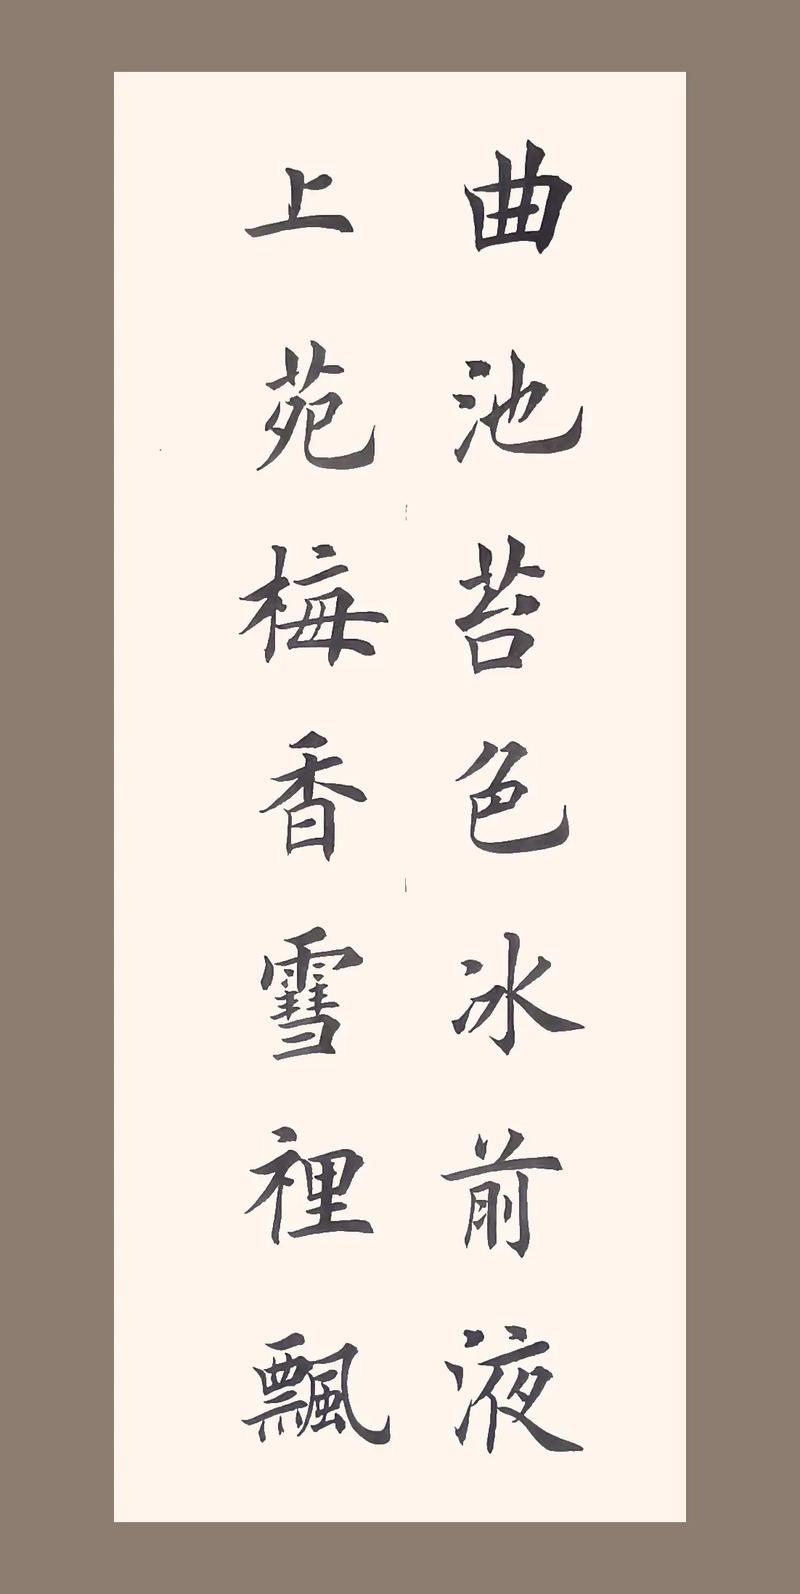 曲池苔色冰前液
上苑梅香雪裡飄